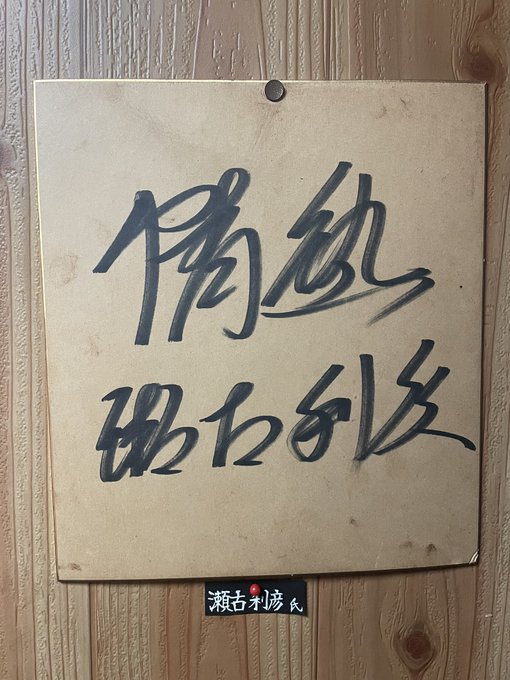 情熱
瀬古利彦
瀬古利彦 氏